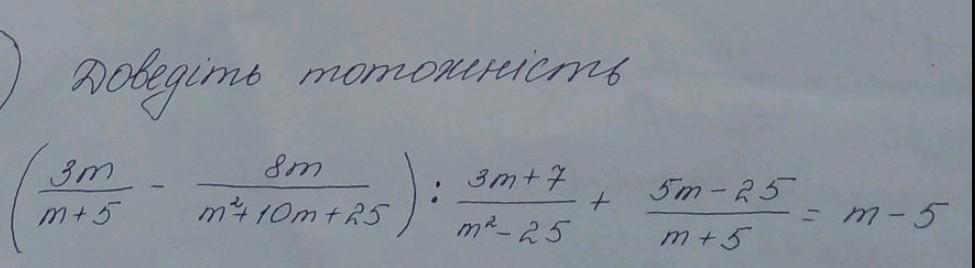 ) Доведіть тотожність
(3m/(m+5) - 8m/(m²+10m+25)) : (3m+7)/(m²-25) + (5m-25)/(m+5) = m-5